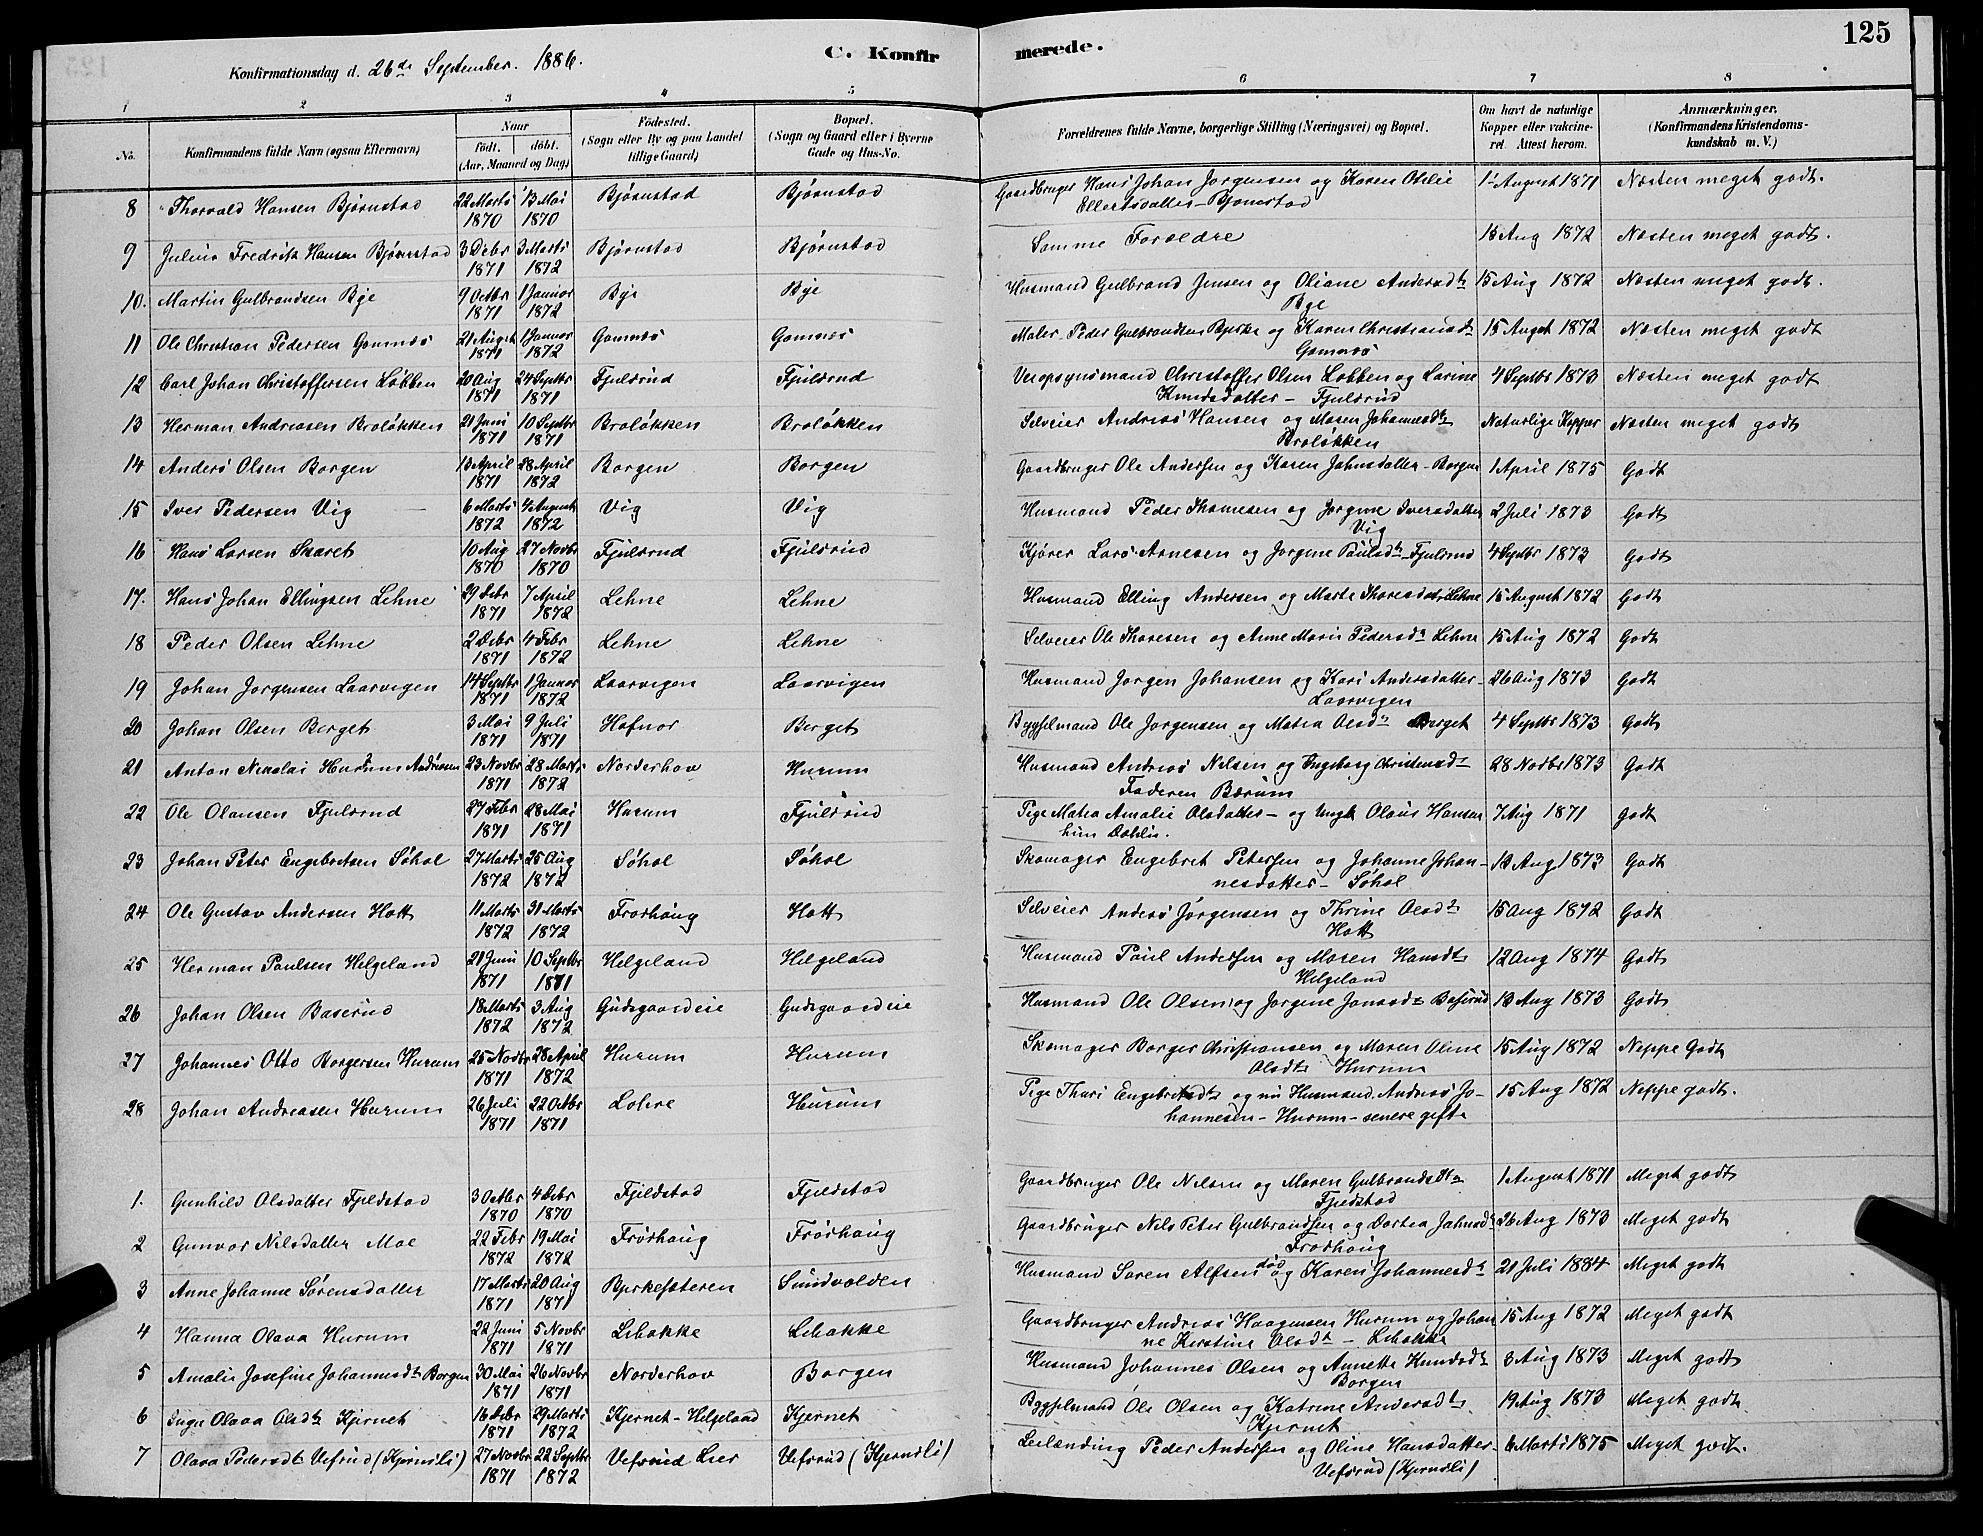 125
Konfirmationsdag d. 26de September. 1886.
C. Konfirmerede.
1 2 3 4 5 6 7 8
No. Konfirmandens fulde Navn (ogsaa Efternavn) Naar födt. döbt. (Aar, Maaned og Dag) Födested. (Sogn eller By og paa Landet tillige Gaard) Bopæl. (Sogn og Gaard eller i Byerne Gade og Hus-No. Forældrenes fulde Navne, borgerlige Stilling (Næringsvei) og Bopæl. Om havt de naturlige Kopper eller vakcineret. Attest herom. Anmærkninger. (Konfirmandens Kristendomskundskab m. V.)
8 Thorvald Hansen Bjørnstad 22 Marts 1870 13 Mai 1870 Bjørnstad Bjørnstad Gaardbruger Hans Johan Jorgensen og Karen Otilie Ellertsdatter - Bjørnstad 1 August 1871 Næsten meget godt.
9 Julius Fredrik Hansen Bjørnstad 3 Debr 1871 3 Marts 1872 Bjørnstad Bjørnstad Samme Forældre 13 Aug 1872 Næsten meget godt.
10. Martin Gulbrandsen Bye 9 Octbr 1871 1 Januar 1872 Bye Bye Husmand Gulbrand Jensen og Oliane Andersdtr Bye 15 Aug 1872 Næsten meget godt.
11 Ole Christian Pedersen Gomnæs 21 August 1871 1 Januar 1872 Gomnæs Gomnæs Maler Peder Gulbrandsen Bjerke og Karen Christiansdtr Gomnæs 15 August 1872 Næsten meget godt
12 Carl Johan Christoffersen Løbben 20 Aug 1871 24 Septbr 1871 Fjulsrud Fjulsrud Veiopsynsmand Christoffer Olsen Løbben og Larine Knudsdatter - Fjulsrud 4 Septbr 1873 Næsten meget godt
13 Herman Andreasen Broløkken 21 Juni 1871 10 Septbr 1871 Broløkken Broløkken Selveier Andreas Hansen og Maren Johannesdtr Broløkken Naturlige Kopper Næsten meget godt
14 Anders Olsen Borgen 13 April 1871 28 April 1872 Borgen Borgen Gaardbruger Ole Andersen og Karen Johnsdatter - Borgen 1 April 1875 Godt
15 Iver Pedersen Vig 6 Marts 1872 4 August 1872 Vig Vig Husmand Peder Thomesen og Jorgine Iversdatter Vig 2 Juli 1873 Godt
16 Hans Larsen Skaret 10 Aug 1870 27 Novbr 1870 Fjulsrud Fjulsrud Kjører Lars Arnesen og Jorgene Paulsdtr Fjulsrud 4 Septbr 1873 Godt
17. Hans Johan Ellingsen Lehne 29 Debr 1871 7 April 1872 Lehne Lehne Husmand Elling Andersen og Marte Thoresdatr Lehne 15 August 1872 Godt
18 Peder Olsen Lehne 2 Debr 1871 4 Febr 1872 Lehne Lehne Selveier Ole Thoresen og Anne Marie Pedersdtr Lehne 15 Aug 1872 Godt
19 Johan Jorgensen Laarvigen 14 Septbr 1871 1 Januar 1872 Laarvigen Laarvigen Husmand Jorgen Johansen og Kari Andersdatter - Laarvigen 26 Aug 1873 Godt
20 Johan Olsen Berget 3 Mai 1871 9 Juli 1871 Hafnor Berget Bygselmand Ole Jorgensen og Matea Olsdtr Berget 4 Septbr 1873 Godt
21 Anton Nicolai Hurum Andreasen 23 Novbr 1871 28 Marts 1872 Norderhov Hurum Husmand Andreas Nilsen og Ingeborg Christensdtr Faderen Bærum 28 Novbr 1873 Godt
22 Ole Olausen Fjulsrud 27 Febr 1871 28 Mai 1871 Hurum Fjulsrud Pige Matea Amalie Olsdatter - og Ungk Olaus Hansen 7 Aug 1871 Godt
23 Johan Peter Engebretsen Søhol 27 Marts 1872 25 Aug 1872 Søhol Søhol Skomager Engebret Petersen og Johanne Johannesdatter - Søhol 13 Aug 1873 Godt
24 Ole Gustav Andersen Hott 11 Marts 1872 31 Marts 1872 Frorhaug Hott Selveier Anders Jørgensen og Thrine Olsdtr Hott 15 Aug 1872 Godt
25 Herman Paulsen Helgeland 21 Juni 1871 10 Septbr 1871 Helgeland Helgeland Husmand Paul Andersen og Maren Hansdtr Helgeland 12 Aug 1874 Godt
26 Johan Olsen Baserud 18 Marts 1872 3 Aug 1872 Gudsgaardeie Gudsgaardeie Husmand Ole Olsen og Jorgine Jonsdtr Baserud 13 Aug 1873 Godt
27 Johannes Otto Borgersen Hurum 25 Novbr 1871 28 April 1872 Hurum Hurum Skomager Borger Christiansen og Maren Oline Olsdtr Hurum 15 Aug 1872 Neppe Godt
28 Johan Andreasen Hurum 26 Juli 1871 22 Octbr 1871 Lohre Hurum Pige Thuri Engebretsdtr og nu Husmand Andreas Johannesen - Hurum - senere gifte 15 Aug 1872 Neppe godt.
1. Gunhild Olsdatter Fjeldstad 3 Octbr 1870 4 Debr 1870 Fjeldstad Fjeldstad Gaardbruger Ole Nilsen og Maren Gulbrandsdtr Fjeldstad 1 August 1871 Meget godt
2 Gunvor Nilsdatter Moe 22 Febr 1872 19 Mai 1872 Frørhaug Frørhaug Gaardbruger Nils Peter Gulbrandsen og Dortea Johnsdtr Frørhaug 26 Aug 1873 Meget godt
3 Anne Johanne Sørensdatter 17 Marts 1871 20 Aug 1871 Bjerkesæteren Sundvolden Husmand Søren Alfsen død og Karen Johannesdtr 21 Juli 1884 Meget godt
4 Hanna Olava Hurum 22 Juni 1871 5 Novbr 1871 Libakke Libakke Gaardbruger Andreas Haagensen Hurum og Johanne Kirstine Olsdtr - Libakke 15 Aug 1872 Meget godt
5 Amalie Josefine Johannesdtr Borgen 30 Mai 1871 26 Novbr 1871 Norderhov Borgen Husmand Johannes Olsen og Annette Knudsdtr Borgen 3 Aug 1873 Meget godt
6 Inga Olava Olsdtr Kjernet 16 Debr 1871 29 Marts 1872 Kjernet - Helgeland Kjernet Bygselmand Ole Olsen og Katrine Andersdtr Kjernet 19 Aug 1873 Meget godt
7 Olava Pedersdtr Vefsrud (Kjernsli) 27 Novbr 1871 22 Septbr 1872 Vefsrud Lier Vefsrud (Kjernsli) Leilænding Peder Andersen og Oline Hansdatter - Vefsrud (Kjernsli) 6 Marts 1875 Meget godt.